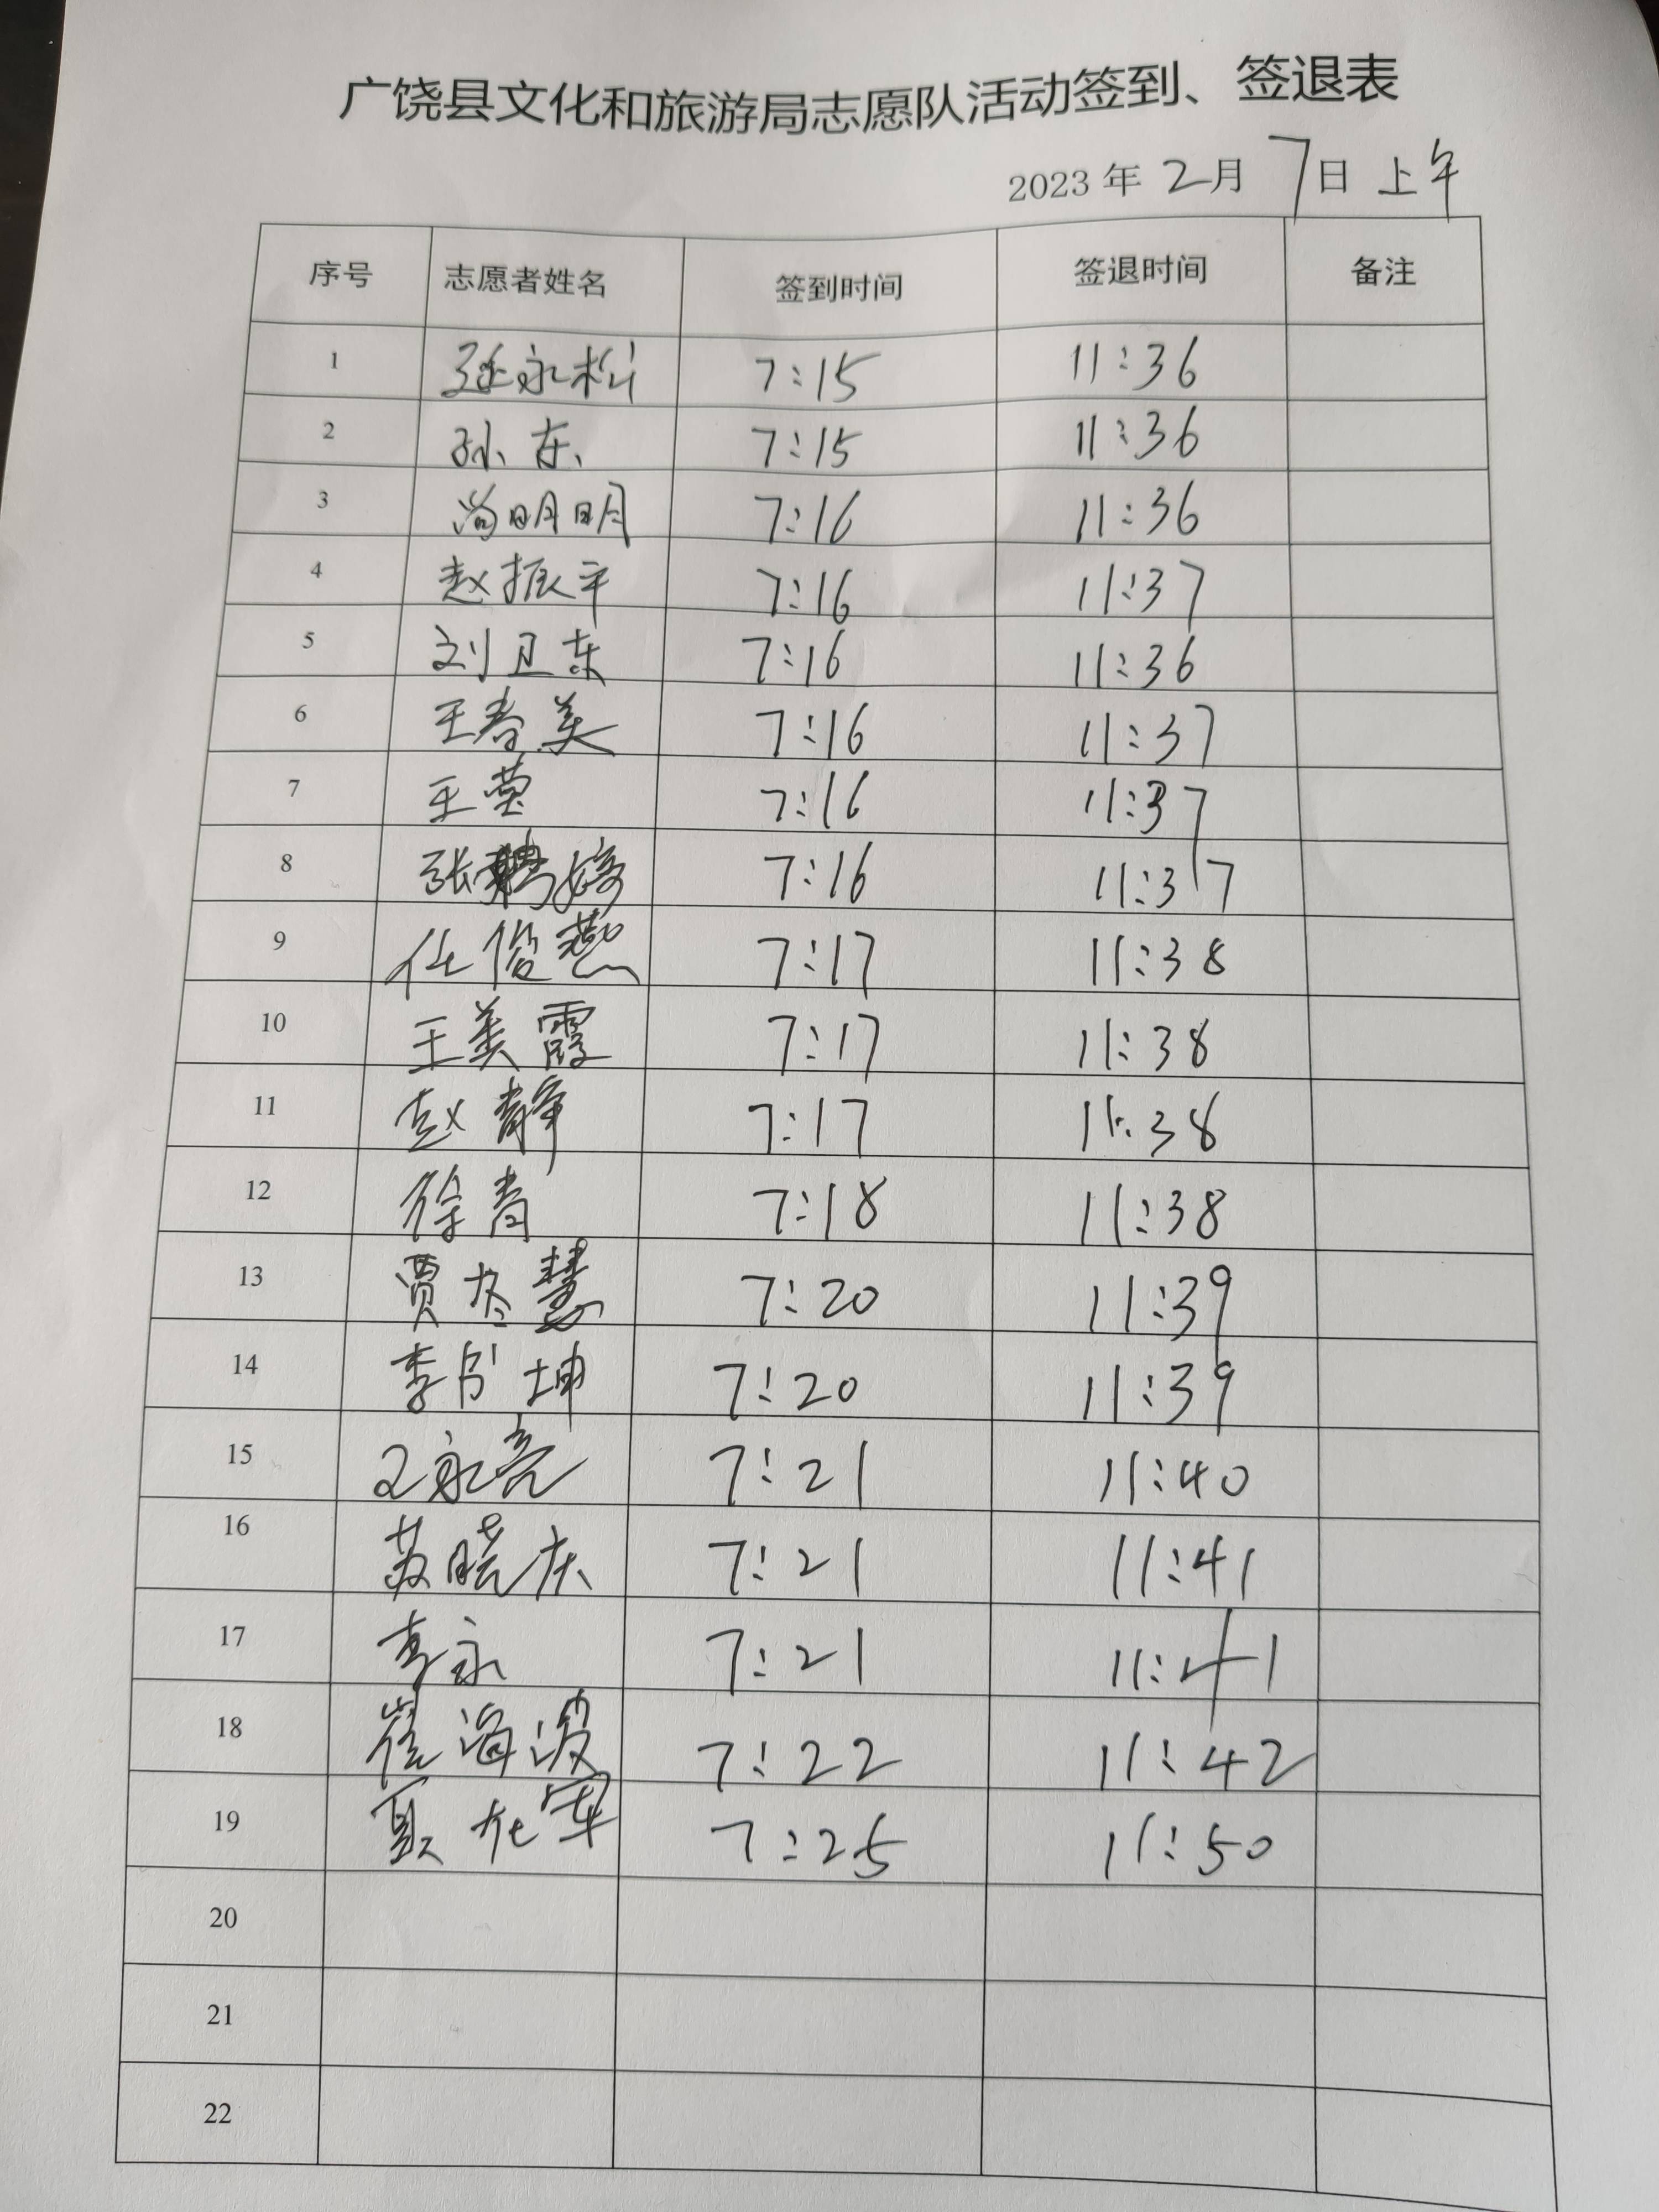 广饶县文化和旅游局志愿队活动签到、签退表
2023 年 2 月 7 日 上午
序号 志愿者姓名 签到时间 签退时间 备注
1 延永松 7:15 11:36
2 孙东 7:15 11:36
3 尚明明 7:16 11:36
4 赵振平 7:16 11:37
5 刘卫东 7:16 11:36
6 王春美 7:16 11:37
7 王莹 7:16 11:37
8 张娉婷 7:16 11:37
9 任俊燕 7:17 11:38
10 王美霞 7:17 11:38
11 赵静 7:17 11:38
12 徐青 7:18 11:38
13 贾冬慧 7:20 11:39
14 李书坤 7:20 11:39
15 王永亮 7:21 11:40
16 苏晓庆 7:21 11:41
17 李永 7:21 11:41
18 崔海波 7:22 11:42
19 夏化军 7:25 11:50
20
21
22